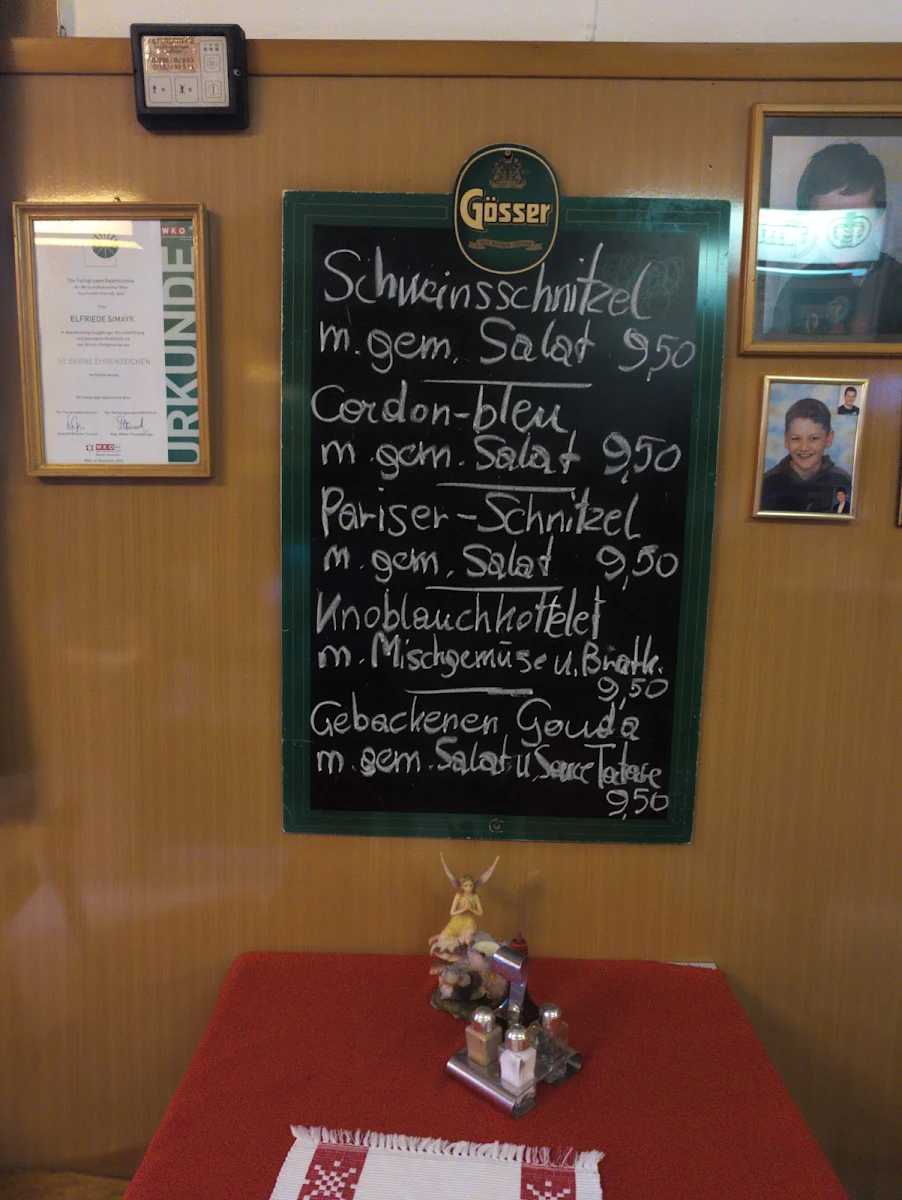 Gösser
Schweinsschnitzel
m. gem. Salat 9,50
Cordon-bleu
m. gem. Salat 9,50
Pariser-Schnitzel
m. gem. Salat 9,50
Knoblauchkottelet
m. Mischgemüse u. Bratk.
9,50
Gebackenen Gouda
m. gem. Salat u. Sauce Tatare
9,50
WKO
URKUNDE
Die Fachgruppe Gastronomie
der Wirtschaftskammer Wien
Frau
ELFRIEDE SIMAYR
SILBERNE EHRENZEICHEN
WKO